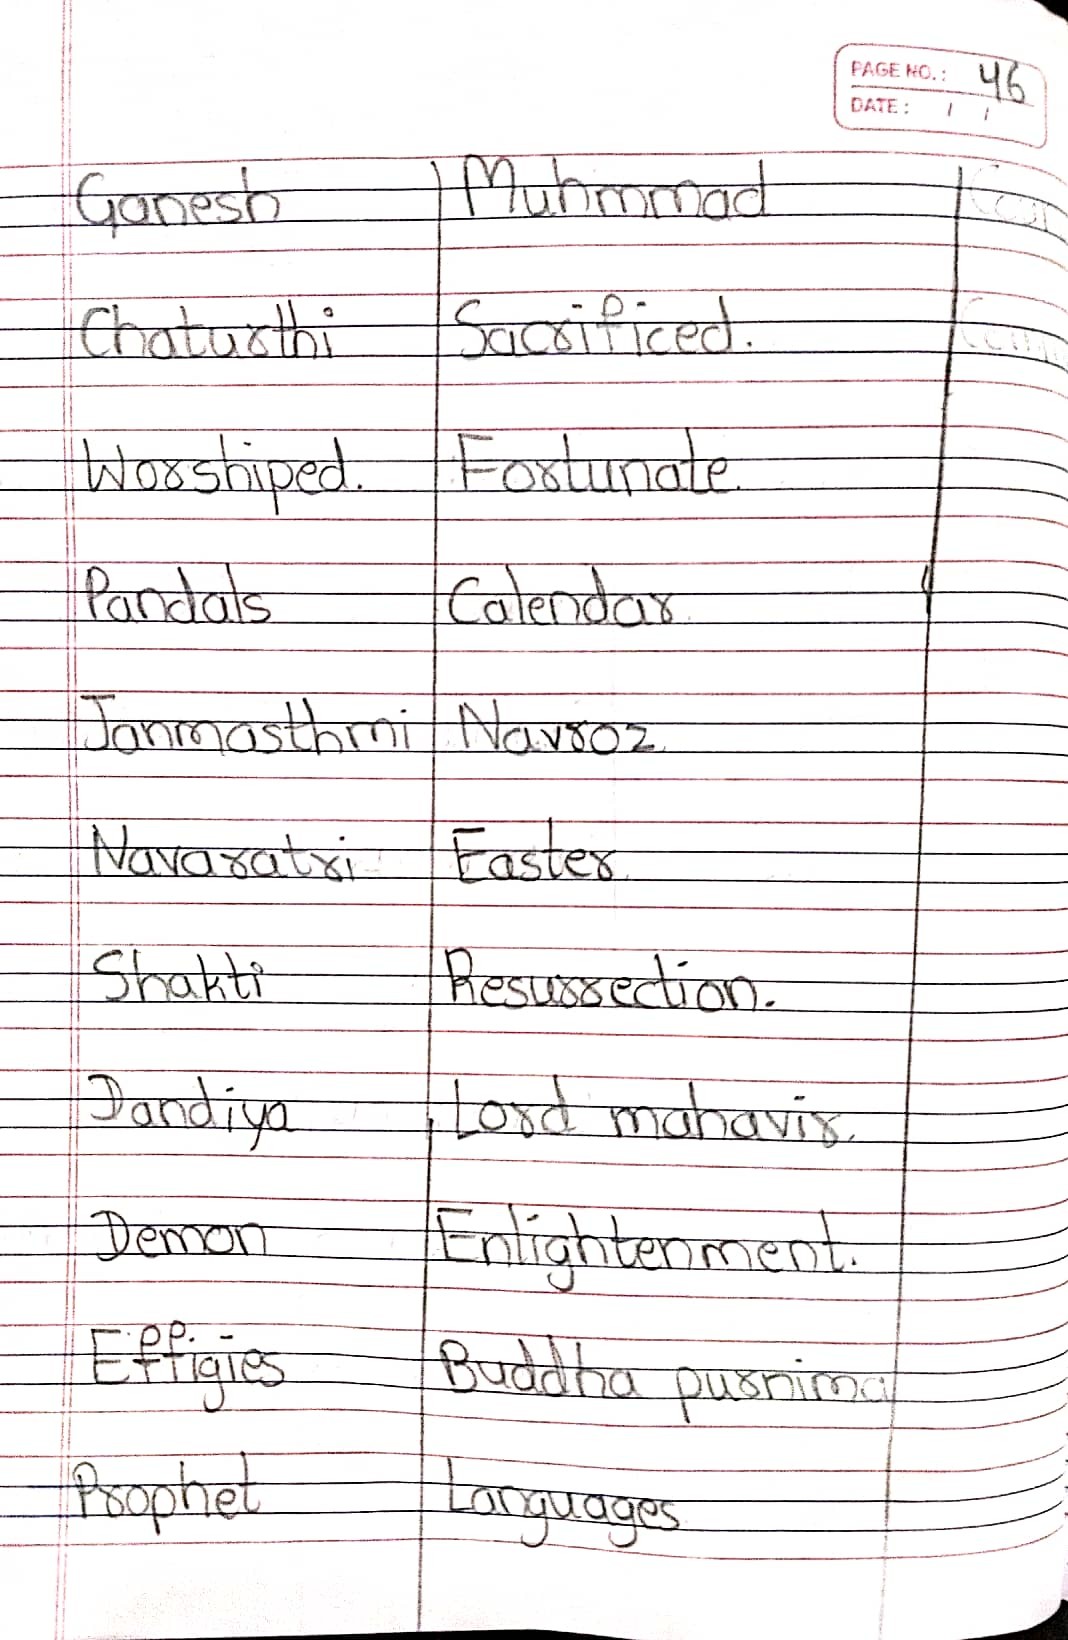 PAGE NO.: 46
DATE: / /
Ganesh Muhmmad
Chaturthi Sacrificed.
Worshiped. Fortunate.
Pandals Calendar.
Janmasthmi Navroz
Navaratri Easter.
Shakti Resurrection.
Dandiya Lord mahavir.
Demon Enlightenment.
Effigies Buddha purnima
Prophet Languages